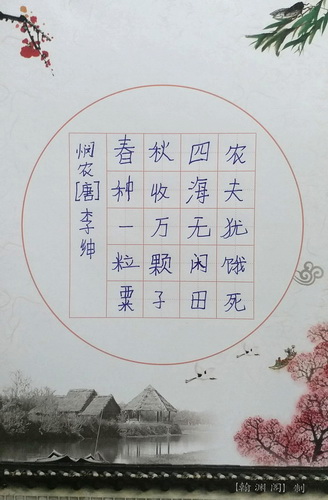 悯农
[唐]李绅
春种一粒粟
秋收万颗子
四海无闲田
农夫犹饿死
[翰渊阁]制